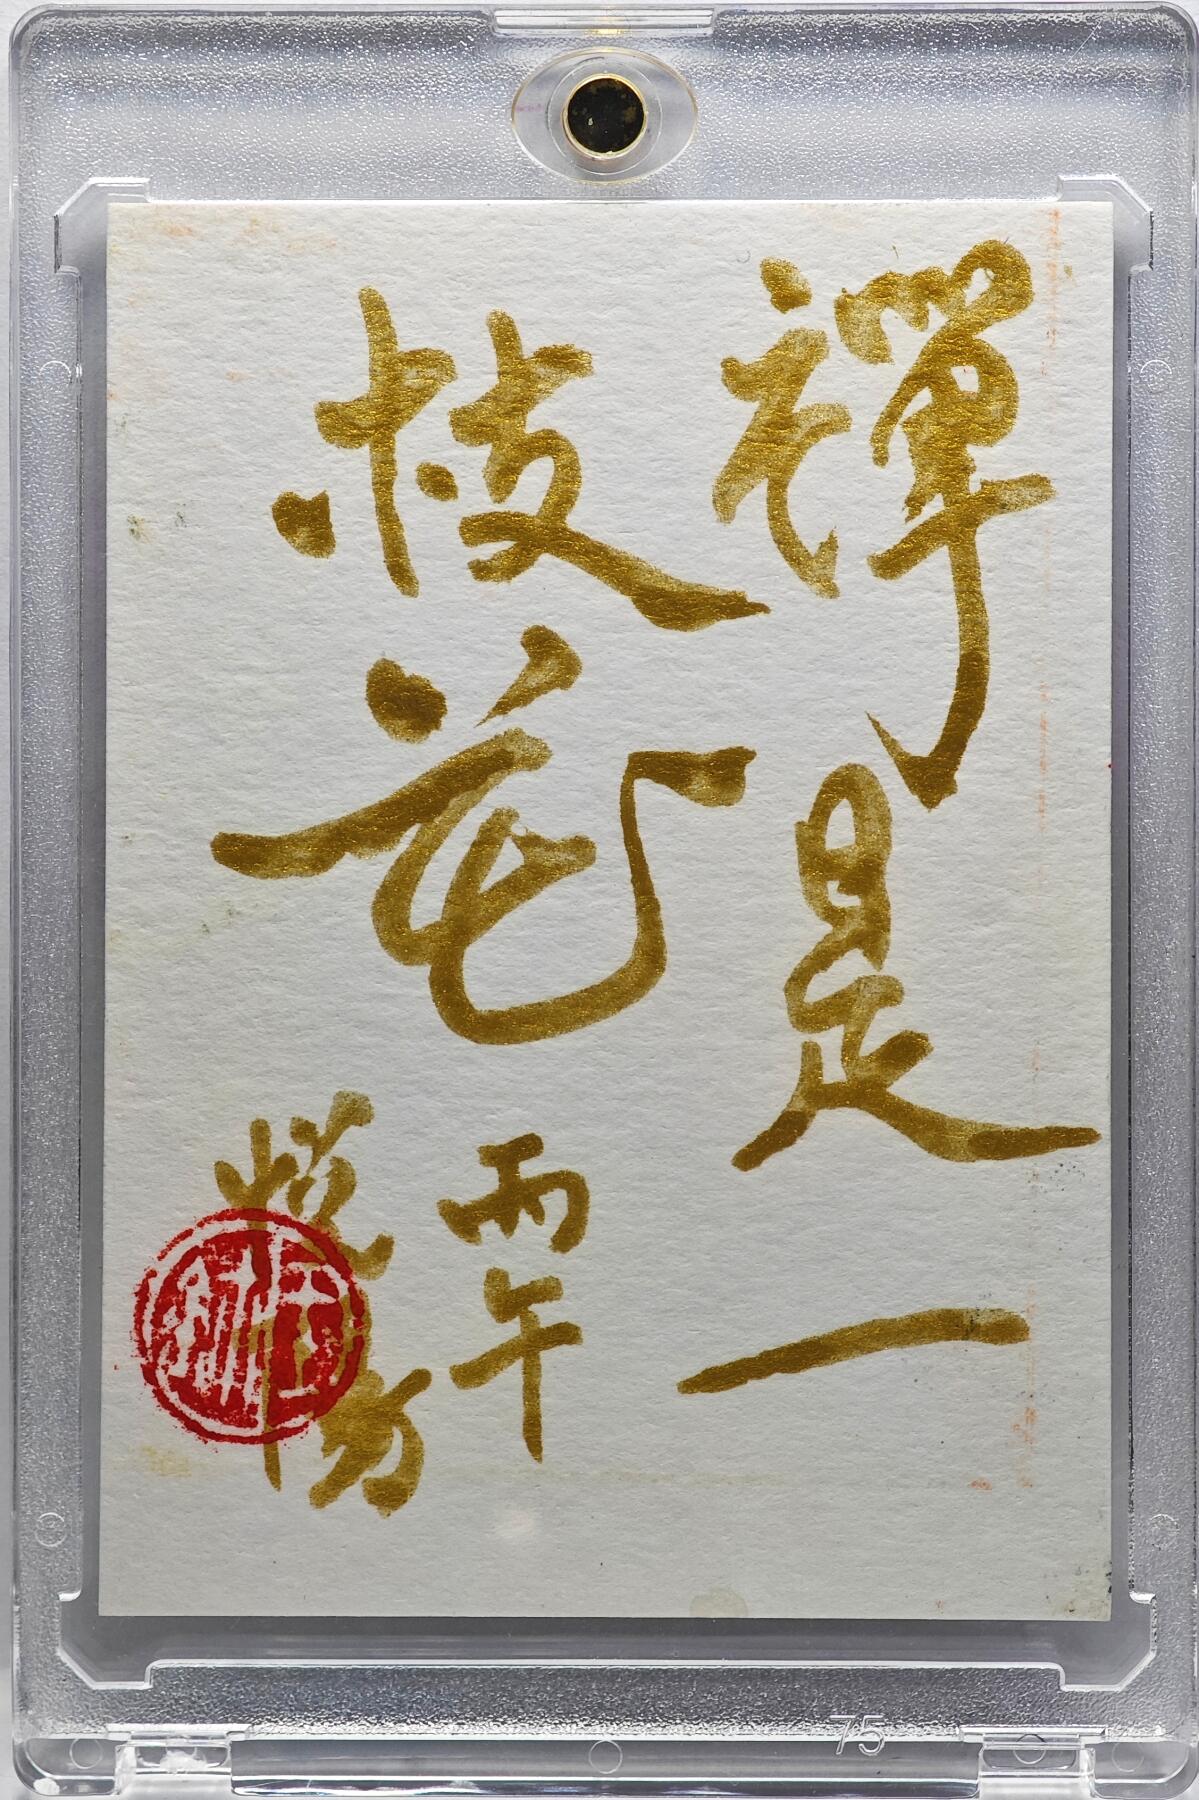 禪是一
枝花
丙午
75